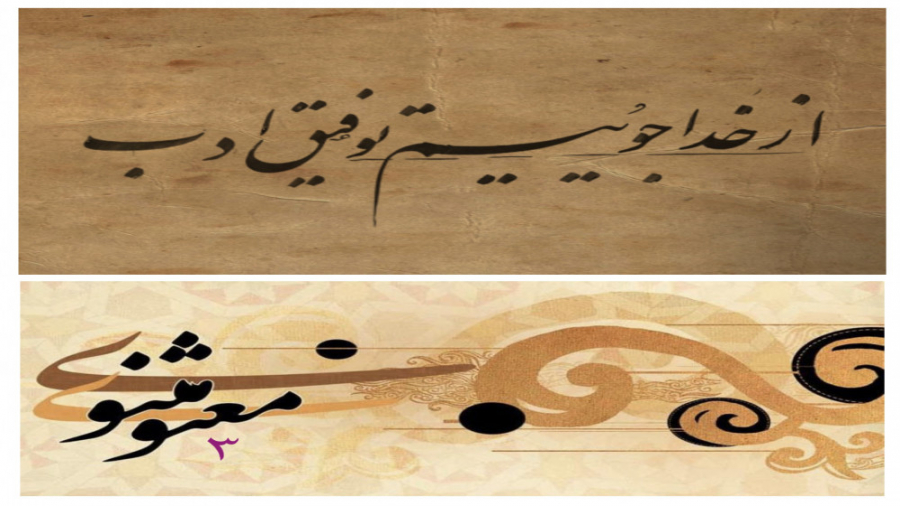 از خدا جوییم توفیق ادب
مثنوی معنوی
۳